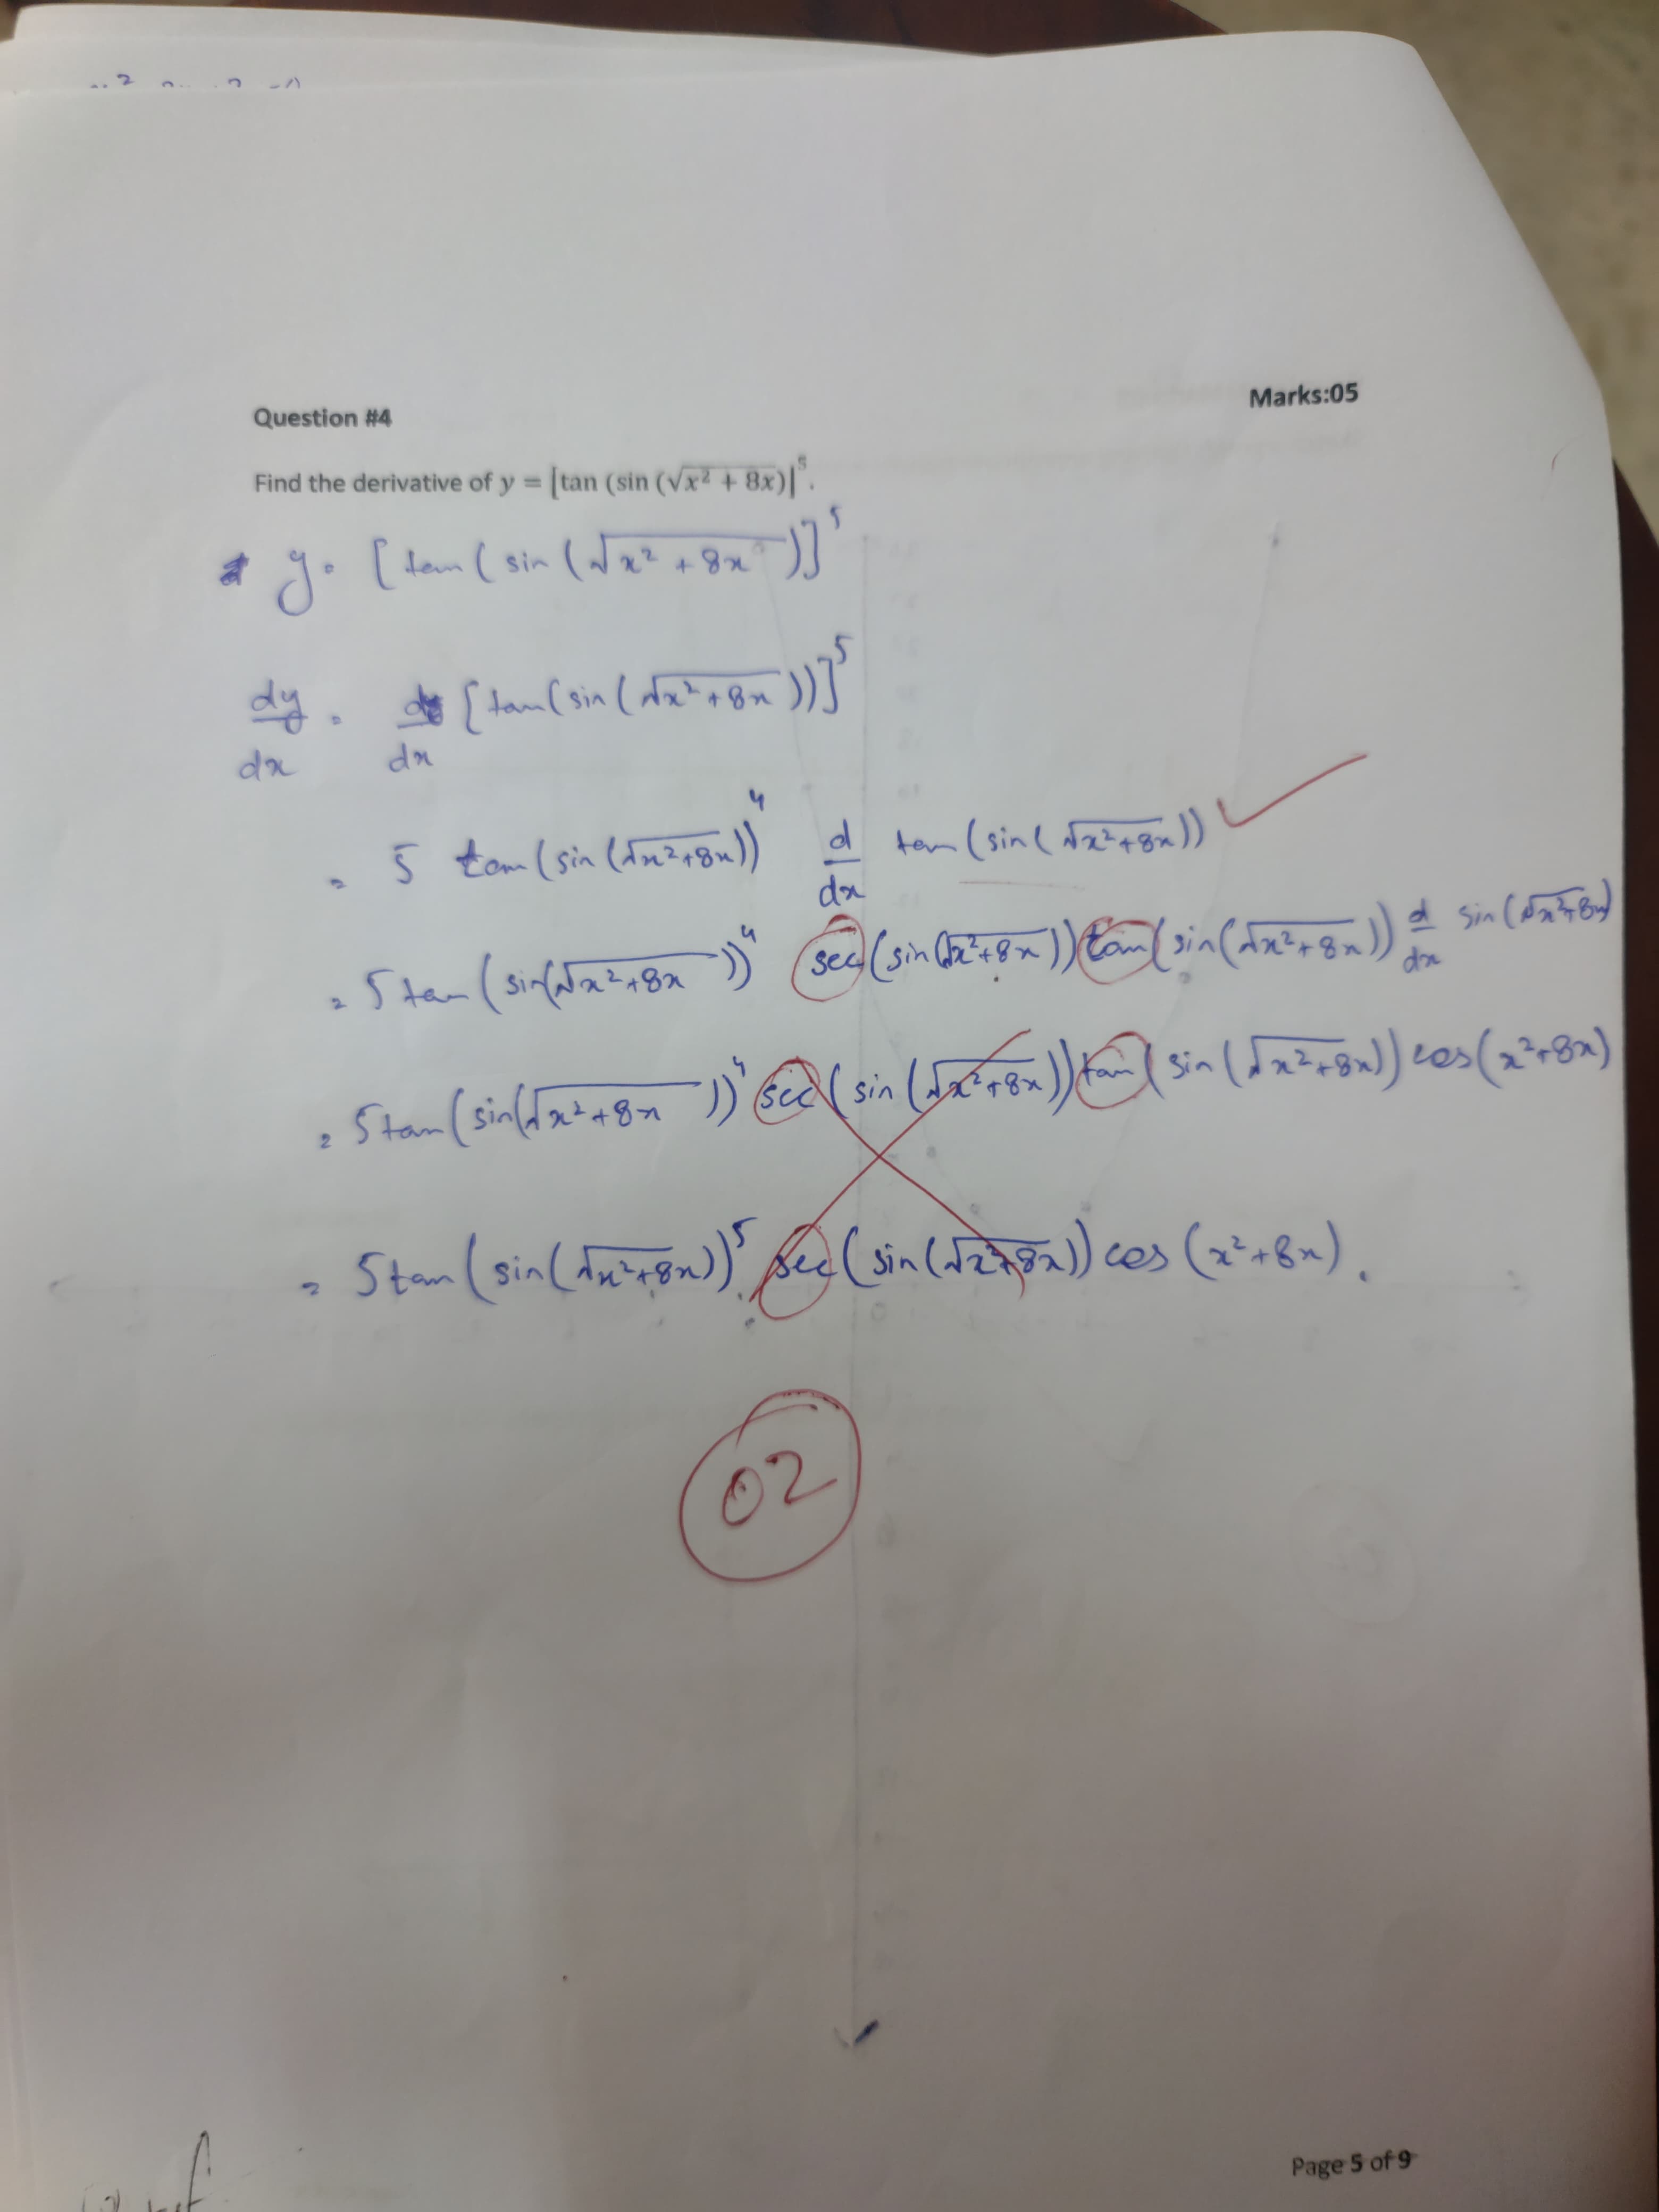 Marks:05
Question #4
Find the derivative of y = [tan (sin (√x² + 8x)]⁵.
y = [tan (sin (√x² + 8x))]⁵
dy/dx = d/dx [tan(sin(√x²+8x))]⁵
= 5 tan(sin(√x²+8x))⁴ d/dx tan(sin(√x²+8x))
= 5 tan(sin(√x²+8x))⁴ sec(sin(√x²+8x)) tan(sin(√x²+8x)) d/dx sin(√x²+8x)
= 5 tan(sin(√x²+8x))⁴ sec(sin(√x²+8x)) tan(sin(√x²+8x)) cos(x²+8x)
= 5 tan(sin(√x²+8x))⁵ sec(sin(√x²+8x)) cos(x²+8x).
02
Page 5 of 9